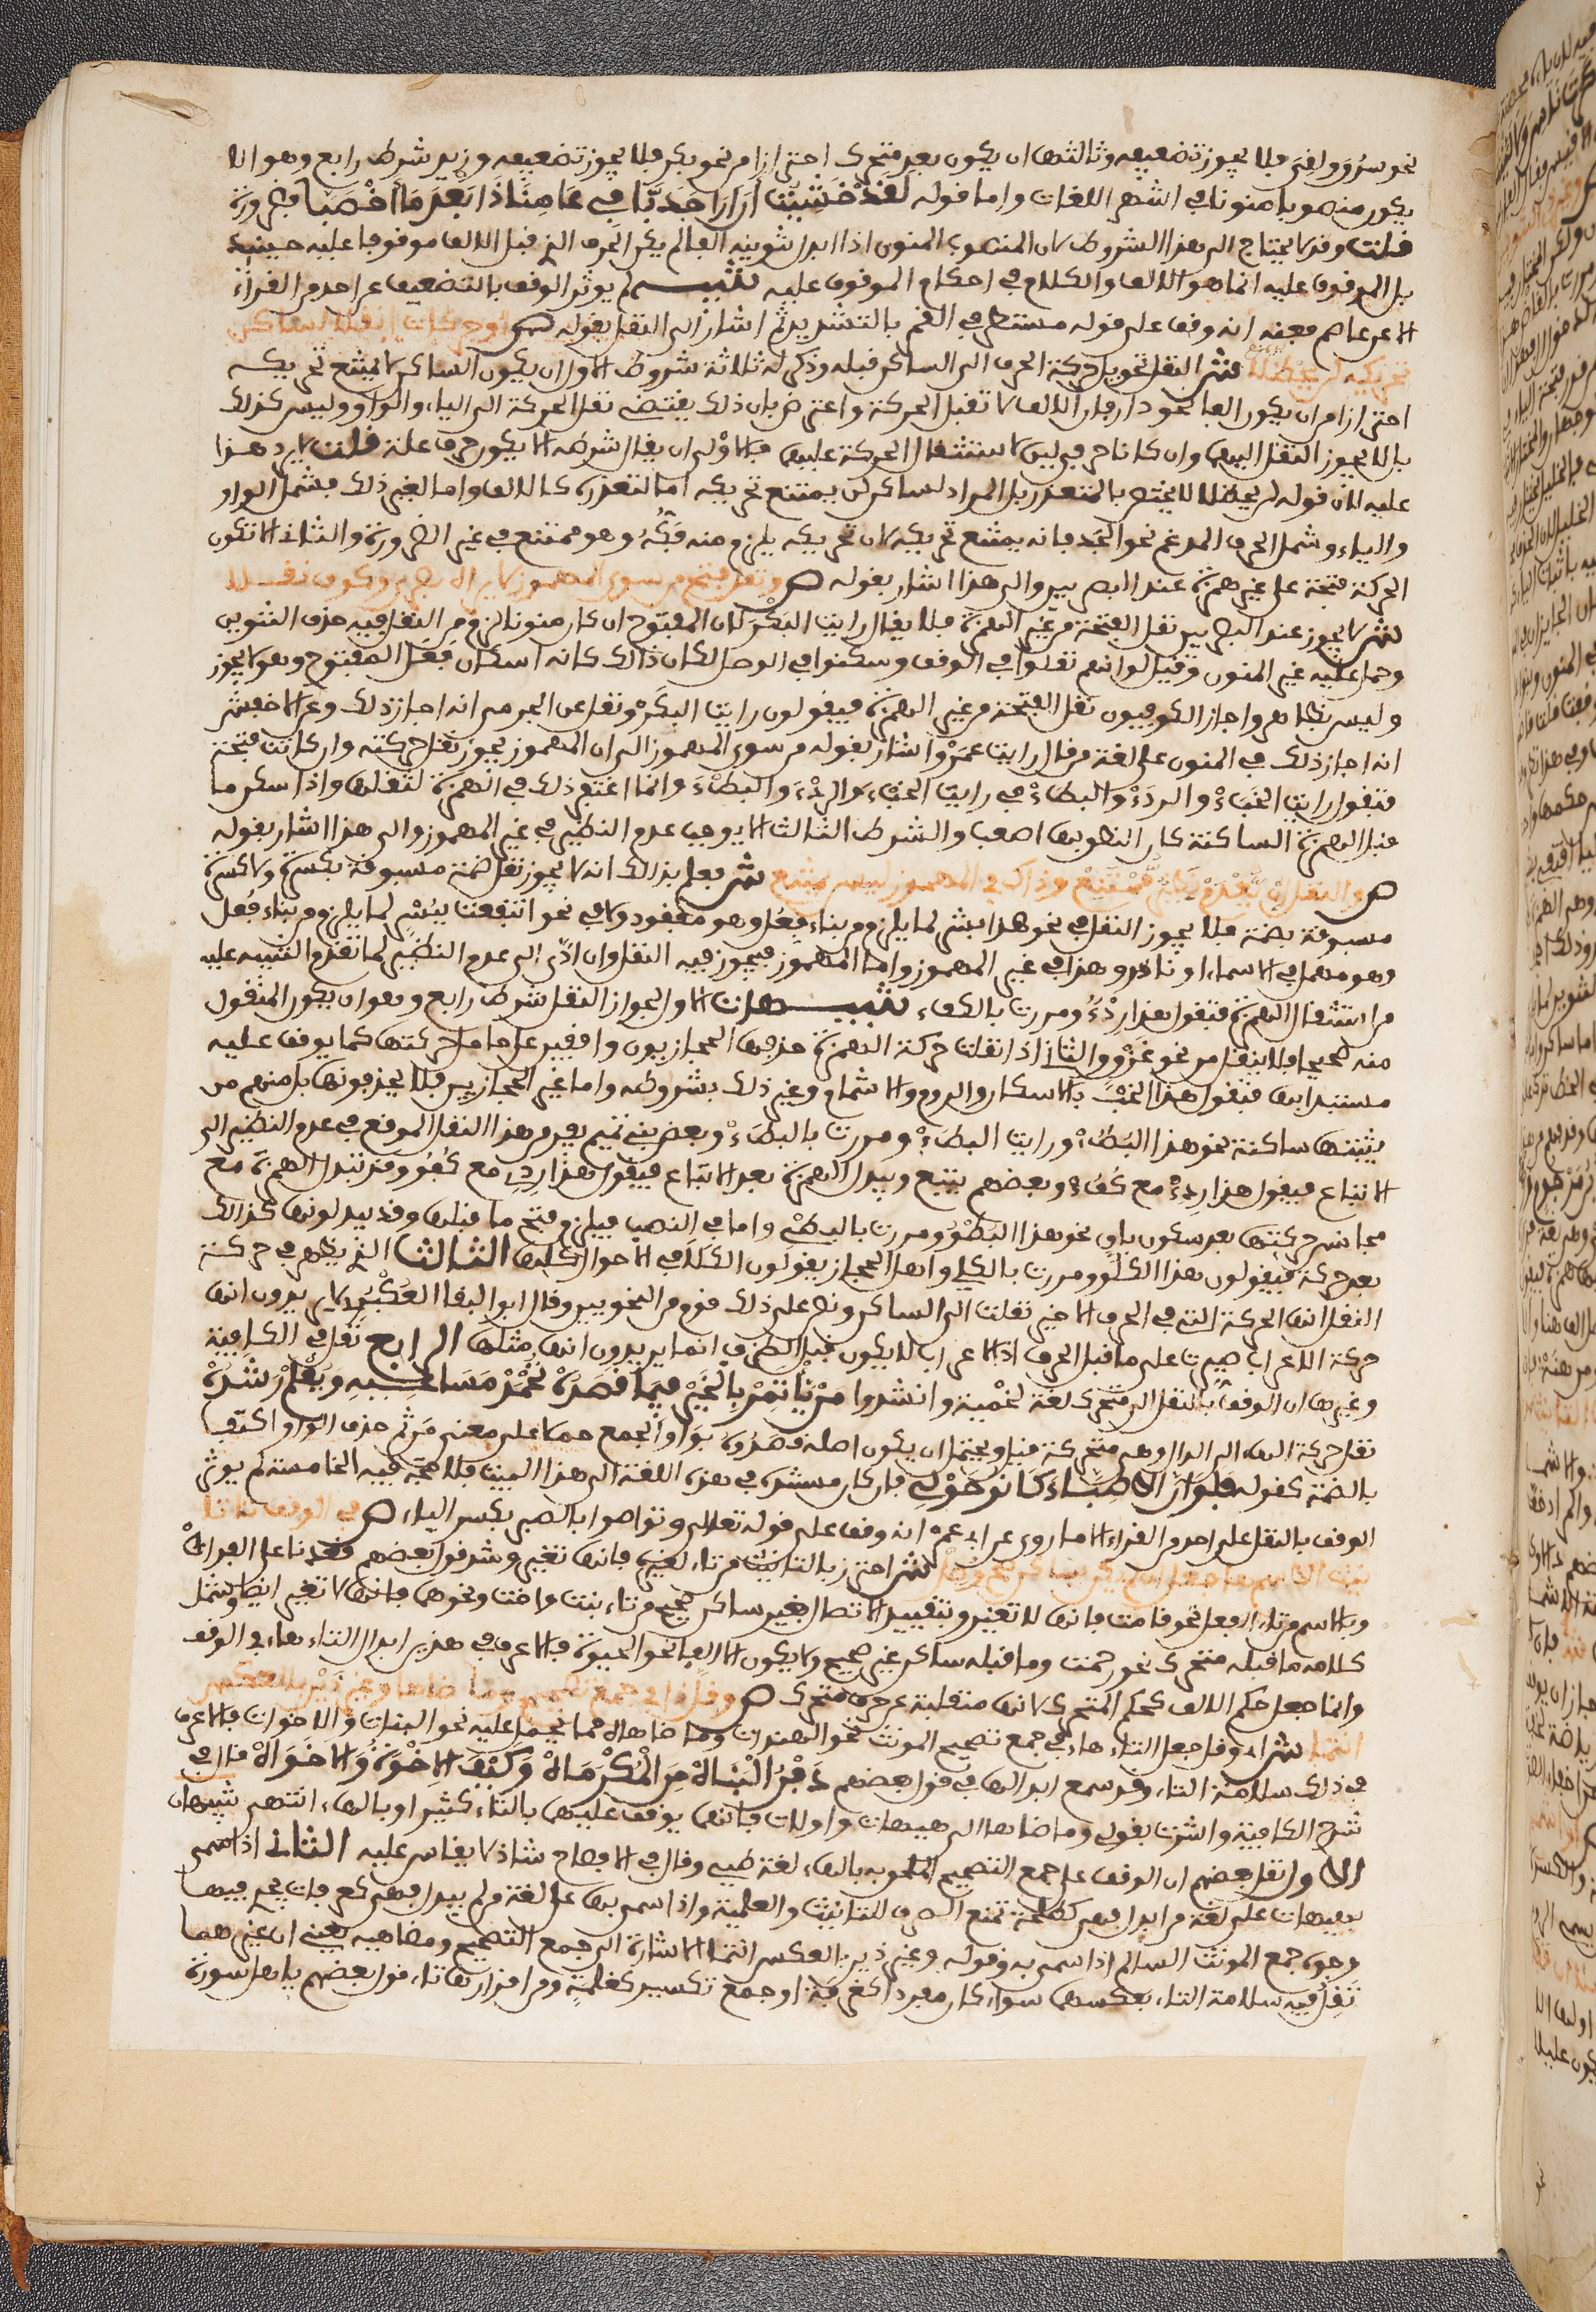 نحو سرو وافى فلا يجوز تضعيفه وثالثها ان يكون بعد متحرك احترازا من نحو بكر فلا يجوز تضعيفه وزيد شرط رابع وهو الا
يكون منصوبا منونا في اشهر اللغات واما قوله لقد خشيت ان ارا جدبا في عامنا ذا بعد ما اخصبا فضرورة
قلت وقد لا يحتاج الى هذا الشرط لان المنصوب المنون اذا ابدل تنوينه الفا لم يكن الحرف الذي قبل الالف موقوفا عليه حينئذ
بل الموقوف عليه انما هو الالف والكلام في احكام الموقوف عليه تنبيه لم يوثر الوقف بالتضعيف عن احد من القراء
الا عن عاصم فعنه انه وقف على قوله مستطر في القمر بالتشديد ثم اشار الى النقل بقوله ص وحركات انقلا لساكن
تحريكه لن يحظلا ش النقل تحويل حركة الحرف الى الساكن قبله وذكر له ثلاثة شروط الاول ان يكون الساكن لا يمتنع تحريكه
احترازا من ان يكون الفا نحو دار فان الالف لا تقبل الحركة واعترض بان ذلك يقتضي نقل الحركة الى الياء والواو وليس كذلك
بل لا يجوز النقل اليهما وان كانا حرفي لين لاستثقال الحركة عليهما فالاولى ان يقال شرطه الا يكون حرف علة قلت لا يرد هذا
عليه لان قوله لن يحظلا لا يختص بالمتعذر بل المراد لساكن لن يمتنع تحريكه اما لتعذره كالالف واما لغير ذلك فشمل الواو
والياء وشمل الحرف المدغم نحو الجد فانه يمتنع تحريكه لان تحريكه يلزم منه فكه وهو ممتنع في غير الضرورة والثاني الا تكون
الحركة فتحة على غير همزة عند البصريين والى هذا اشار بقوله ص ونقل فتح من سوى المهموز لا يراه بصري وكوف نقلا
ش لا يجوز عند البصريين نقل الفتحة من غير الهمزة فلا يقال رايت البكر لان المفتوح ان كان منونا لزم من النقل فيه حذف التنوين
وحمل عليه غير المنون وقيل لو انهم نقلوا في الوقف وسكنوا في الوصل لكان ذالك كانه اسكان فعل المفتوح وهو لا يجوز
وليس بظاهر واجاز الكوفيون نقل الفتحة من غير الهمزة فيقولون رايت البكر ونقل عن الجرمي انه اجاز ذلك وعن الاخفش
انه اجاز ذلك في المنون على لغة من قال رايت عمر واشار بقوله من سوى المهموز الى ان المهموز يجوز نقل حركته وان كانت فتحة
فتقول رايت الخبا والردا والبطا في رايت الخبء والردء والبطء وانما اغتفر ذلك في الهمزة لثقلها واذا سكن ما
قبل الهمزة الساكنة كان النطق بها اصعب والشرط الثالث الا يودي الى عدم النظير في غير المهموز والى هذا اشار بقوله
ص والنقل ان يعدم نظير ممتنع وذاك في المهموز ليس يمتنع ش يعلم بذلك انه لا يجوز نقل ضمة مسبوقة بكسرة ولا كسرة
مسبوقة بضمة فلا يجوز النقل في نحو هذا بشر لما يلزم من بناء فعل وهو مفقود ولا في نحو انتفعت ببسر لما يلزم من بناء فعل
وهو مهمل في الاسماء او نادر وهذا في غير المهموز واما المهموز فيجوز فيه النقل وان ادى الى عدم النظير لما تقدم التنبيه عليه
من استثقال الهمزة فتقول هذا ردؤ ومررت بالكفئ تنبيهات الاول لجواز النقل شرط رابع وهو ان يكون المنقول
منه صحيحا فلا ينقل من نحو غزو والثاني اذا نقلت حركة الهمزة حذفها الحجازيون واقفين على حامل حركتها كما يوقف عليه
مستبدا بها فتقول هذا الخب بالاسكان والروم والاشمام وغير ذلك بشروطه واما غير الحجازيين فلا يحذفونها بل منهم من
يثبتها ساكنة نحو هذا البطؤ ورايت البطأ ومررت بالبطئ وبعض بني تميم يفر من هذا النقل الموقع في عدم النظير الى
الاتباع فيقول هذا ردئ مع كفؤ وبعضهم يتبع ويبدل الهمزة بعد الاتباع فيقول هذا ردي مع كفو وقد تبدل الهمزة مع
مجانس حركتها بعد سكون باق نحو هذا البطو ومررت بالبطي واما في النصب فيلزم فتح ما قبلها وقد يبدلونها كذالك
بعد حركة فيقولون هذا الكلو ومررت بالكلي واهل الحجاز يقولون الكلا في الاحوال كلها الثالث الذي يظهر في حركة
النقل انها الحركة التي في الحرف الاخير نقلت الى الساكن ونص على ذلك قوم من النحويين وقال ابو البقا العكبري لا يريدون انها
حركة الاعراب صيرت على ما قبل الحرف اذ الاعراب لا يكون قبل الطرف انما يريدون انها مثلها الرابع نقل في الكافية
وغيرها ان الوقف بالنقل الى متحرك لغة لخمية وانشدوا من ياتمر بالخير فيما قصده تحمد مساعيه ويعلم رشده
نقل حركة الهاء الى الدال وهي متحركة قبل ويحتمل ان يكون اصله قصدوه بواو الجمع حملا على معنى من ثم حذف الواو اكتفاء
بالضمة كقوله فلو ان الاطباء كان حولي فان كان مستنده في هذه اللغة الى هذا البيت فلا حجة فيه الخامسة لم يوثر
الوقف بالنقل على احد من القراء الا ما روي عن ابي عمر انه وقف على قوله تعالى وتواصوا بالصبر بكسر الباء ص في الوقف تا تا
نيث الاسم ها جعل ان لم يكن بساكن صح وصل ش احترز بالتانيث من تاء لغيره فانها لا تغير وشذ قول بعضهم قعدنا على الفراه
وبالاسم من تاء الفعل نحو قامت فانها لا تغير وبتقييد الاتصال بغير ساكن صحيح من تاء بنت واخت ونحوهما فانها لا تغير ايضا وشمل
كلامه ما قبله متحرك نحو رحمت وما قبله ساكن غير صحيح ولا يكون الا الفا نحو الحيوة فالاعرف في هذين ابدال التاء هاء في الوقف
وانما جعل حكم الالف كحكم المتحرك لانها منقلبة عن حرف متحرك ص وقل ذا في جمع تصحيح وما ضاهى وغير ذين بالعكس
انتما ش اي وقل جعل التاء هاء في جمع تصحيح المونث نحو الهندات وما ضاهاه مما حمل عليه نحو البنات والاخوات فالاعرف
في ذلك سلامة التاء وقد سمع ابدالها في قول بعضهم دفن البناه من المكرماه وكيف الاخوة والاخواه قال في
شرح الكافية واشرت بقولي وما ضاهاها الى هيهات واولات فانهما يوقف عليهما بالتاء كثيرا وبالهاء انتهى تنبيهان
الاول نقل بعضهم ان الوقف على جمع التصحيح والملحق به بالهاء لغة طيئ وقال في الافصاح شاذ لا يقاس عليه الثاني اذا سمي
بهيهات على لغة من ابدل فهي كطلحة تمنع الصرف للتانيث والعلمية واذا سمي بها على لغة من لم يبدل فهي كعرفات يجرى فيها
وجوه جمع المونث السالم اذا سمي به وقوله وغير ذين بالعكس انتما الاشارة الى جمع التصحيح ومضاهيه يعني ان غيرهما
تقل فيه سلامة التاء بعكسهما سواء كان مفردا كغرفة او جمع تكسير كغلمة ومن اقرارها تاء قول بعضهم يا اهل سورة